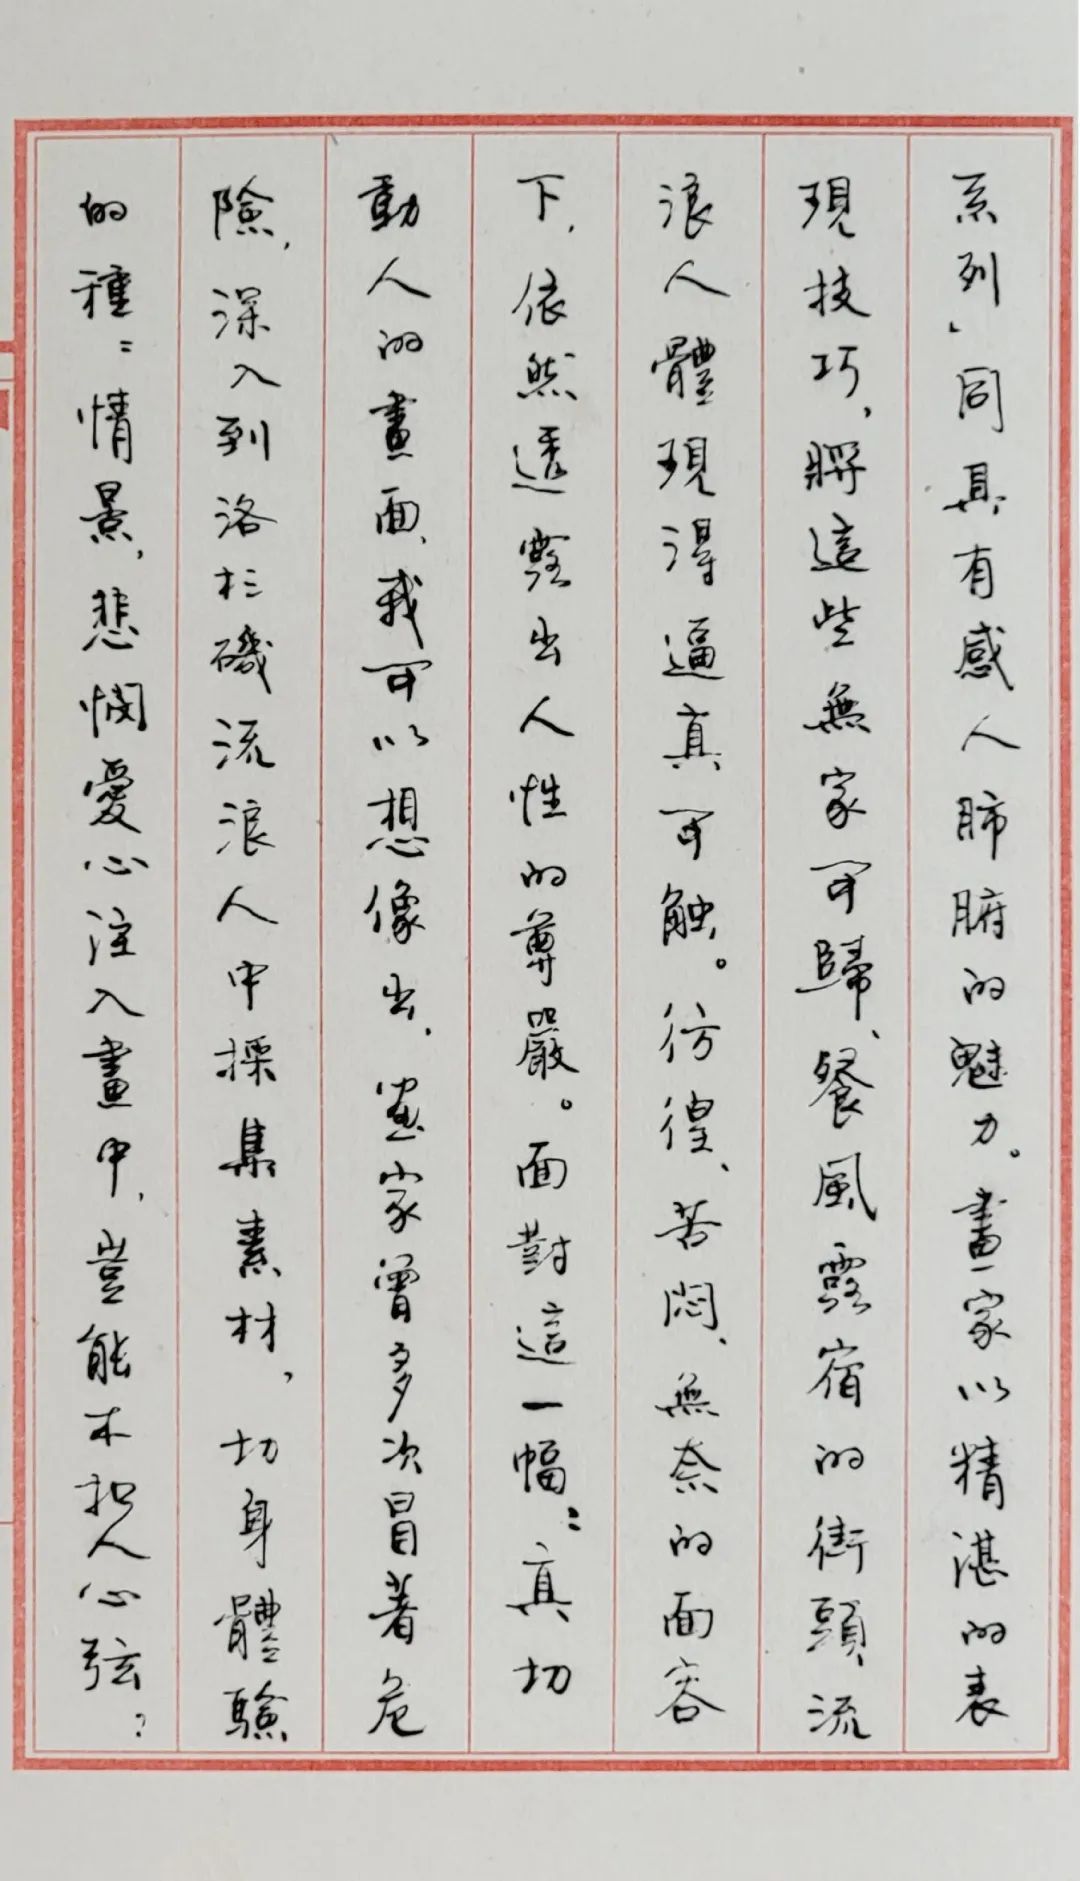 系列」同具有感人肺腑的魅力。畫家以精湛的表
現技巧，將這些無家可歸、餐風露宿的街頭流
浪人體現得逼真可触。彷徨、苦悶、無奈的面容
下，依然透露出人性的尊嚴。面對這一幅：真切
動人的畫面，我可以想像出，畫家曾多次冒著危
險，深入到洛杉磯流浪人中採集素材，切身體驗
的種：情景，悲憫愛心注入畫中，豈能不扣人心弦？